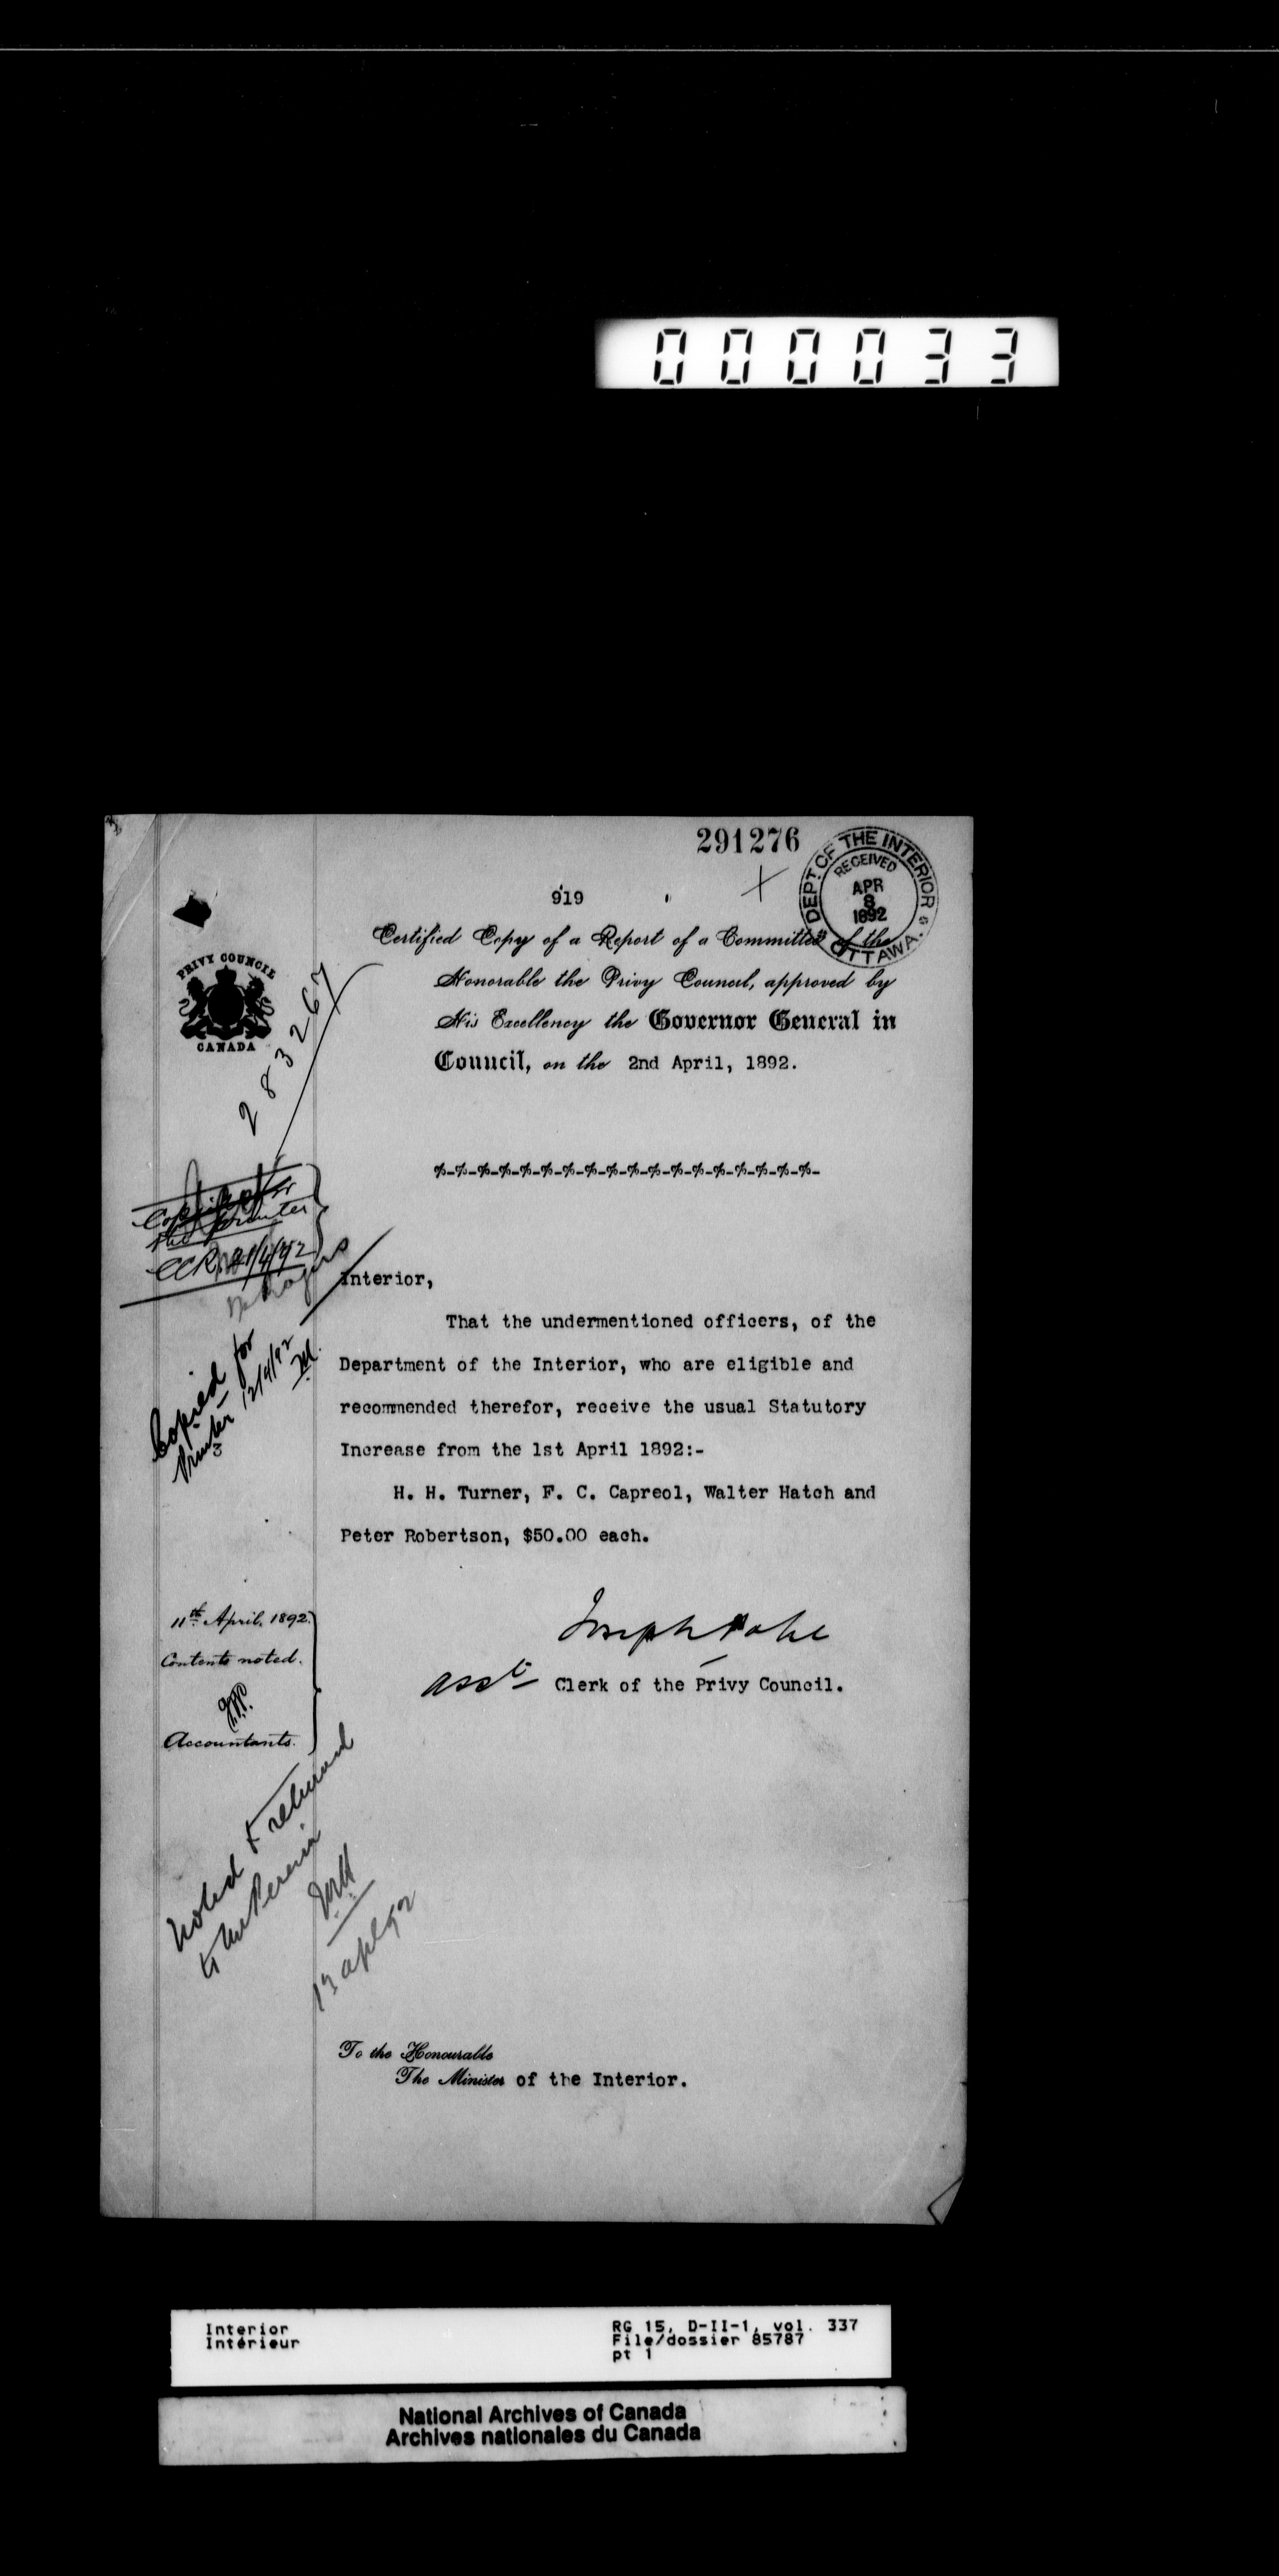 000033
291276
DEPT. OF THE INTERIOR
RECEIVED
APR
8
1892
OTTAWA.
919
Certified Copy of a Report of a Committee of the
Honorable the Privy Council, approved by
His Excellency the Governor General in
Council, on the 2nd April, 1892.
PRIVY COUNCIL
CANADA
283267
%-%-%-%-%-%-%-%-%-%-%-%-%-%-%-%-%-%-
Copied for
the printer
Interior,
That the undermentioned officers, of the
Department of the Interior, who are eligible and
recommended therefor, receive the usual Statutory
Increase from the 1st April 1892:-
H. H. Turner, F. C. Capreol, Walter Hatch and
Peter Robertson, $50.00 each.
Copied for
Printer 12/4/92
3
Joseph Pope
Asst Clerk of the Privy Council.
11th April, 1892.
Contents noted.
Accountants.
Noted & returned
to Mr Pereira
13 apl 92
To the Honourable
The Minister of the Interior.
Interior
Intérieur
RG 15, D-II-1, vol. 337
File/dossier 85787
pt 1
National Archives of Canada
Archives nationales du Canada